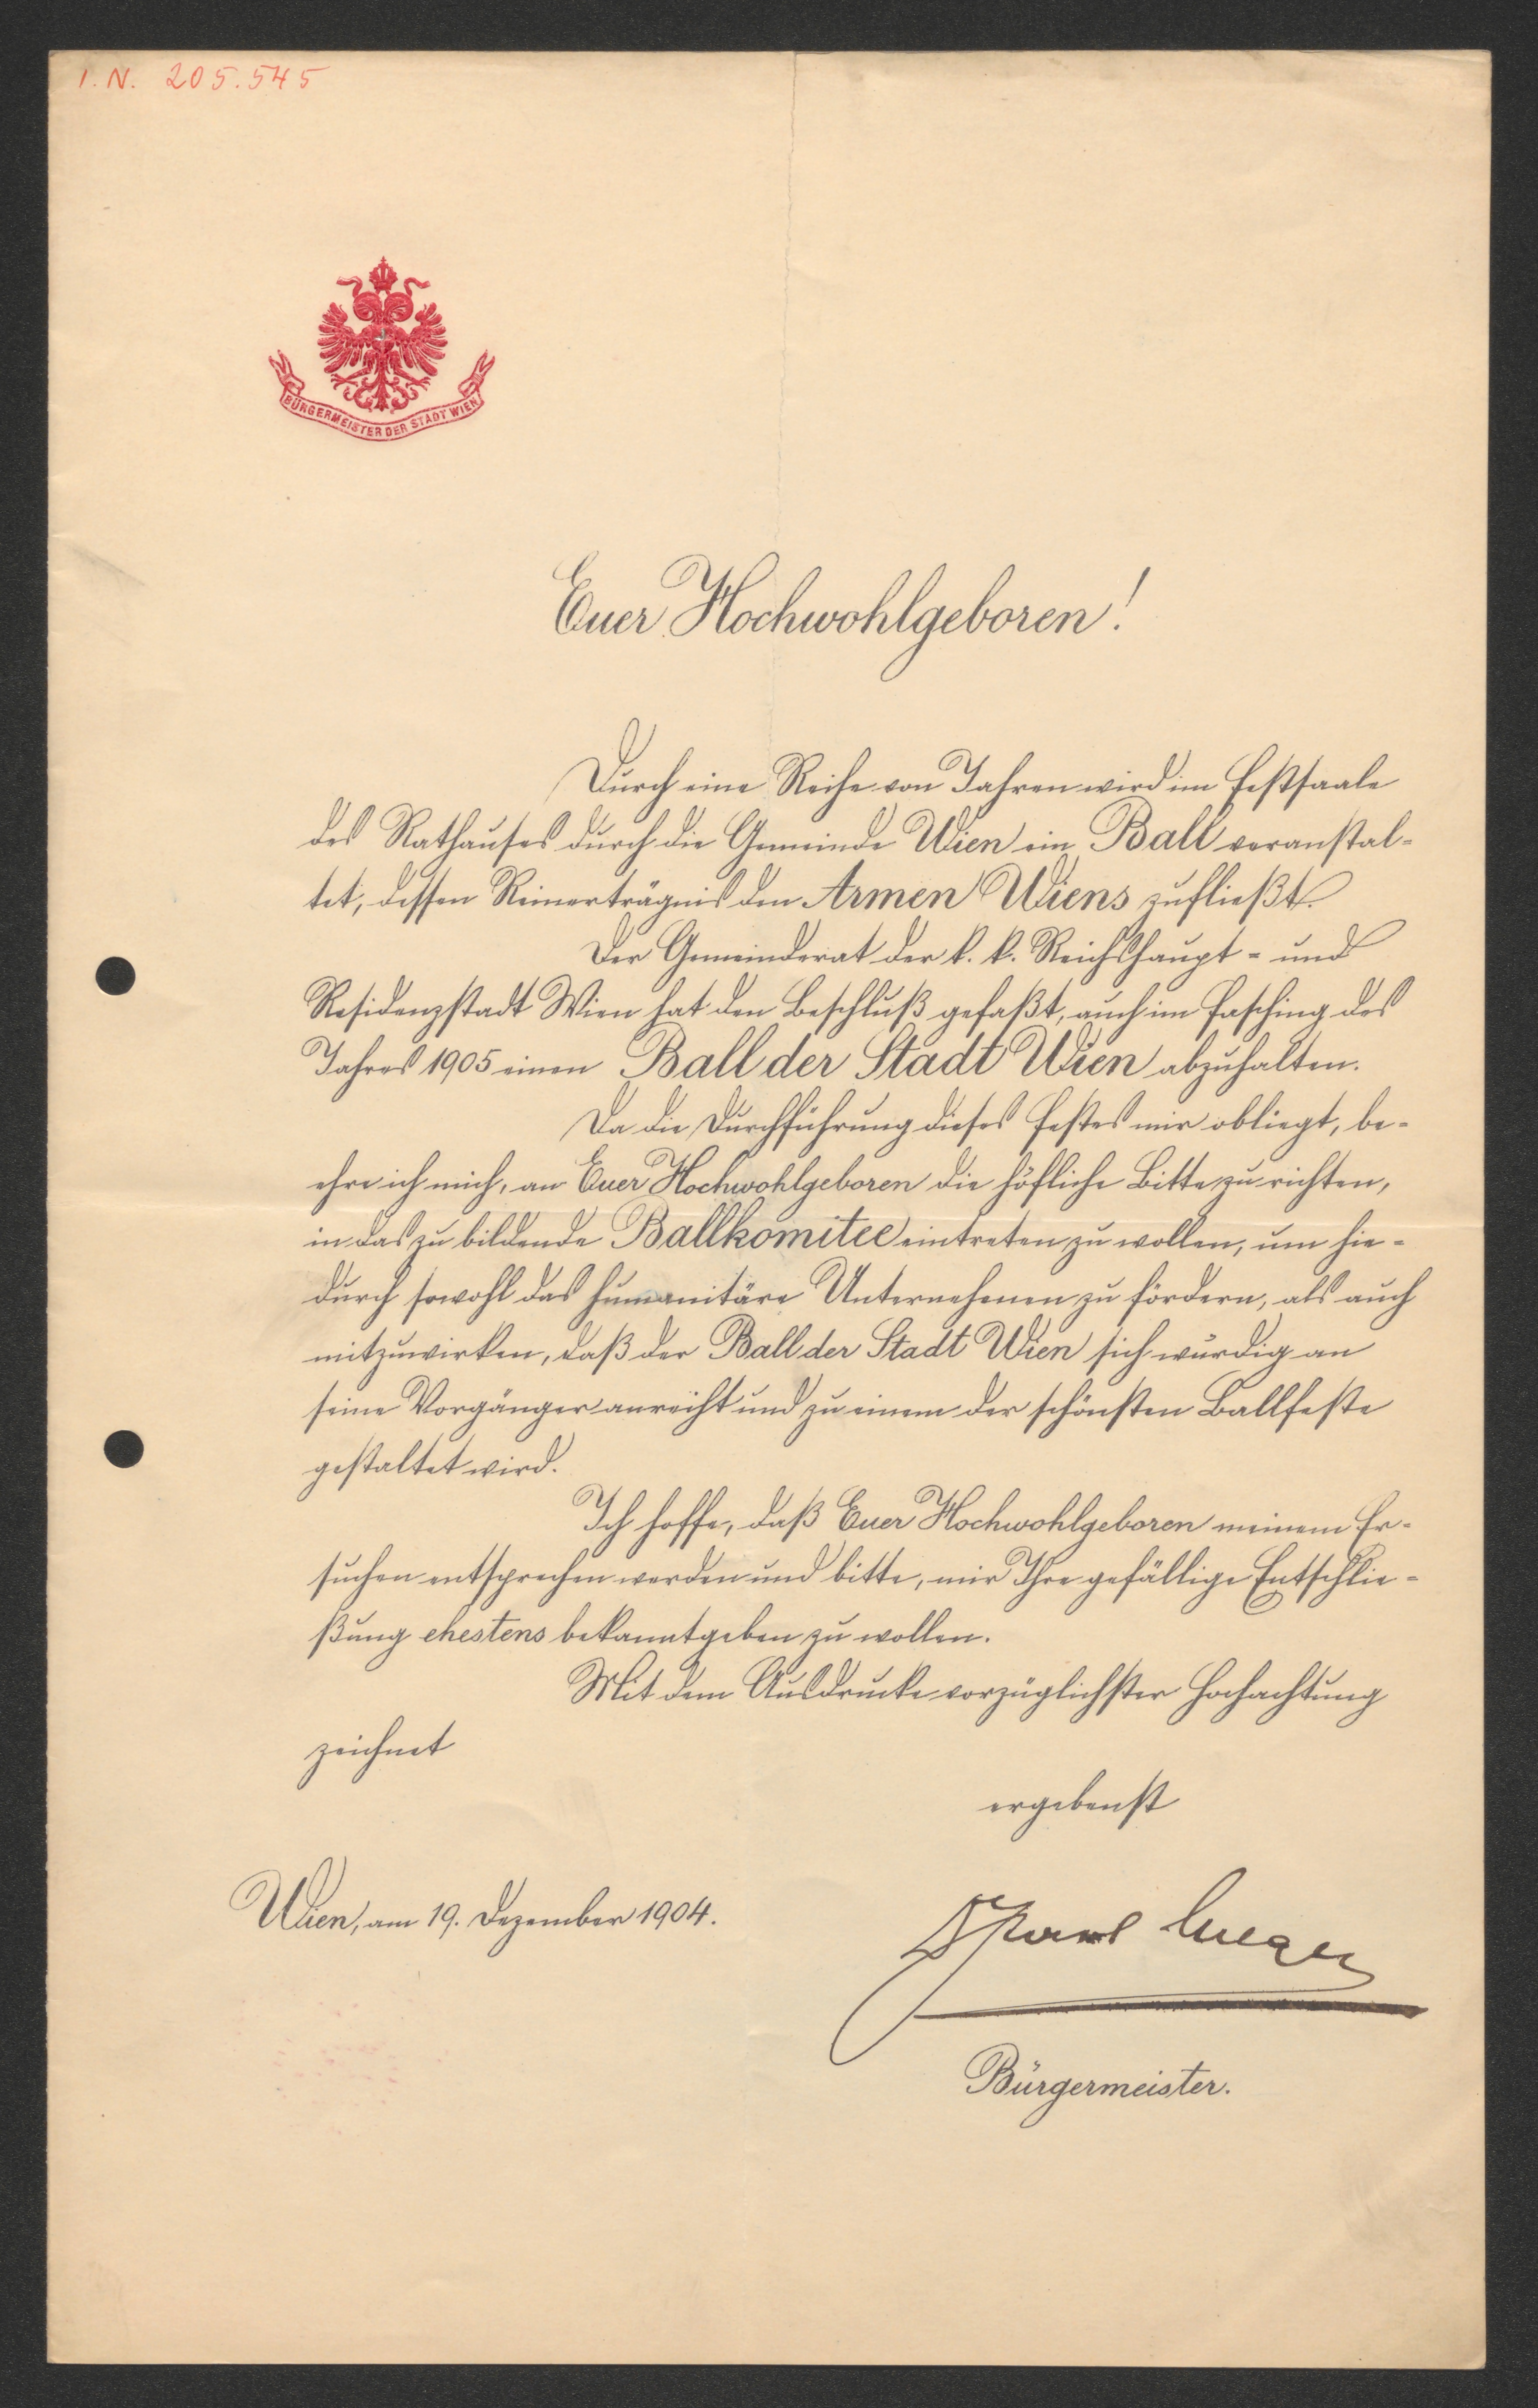 I. N. 205.545
BÜRGERMEISTER DER STADT WIEN
Euer Hochwohlgeboren!
Durch eine Reihe von Jahren wird im Festsaale
des Rathauses durch die Gemeinde Wien ein Ball veranstal-
tet, dessen Reinerträgnis den Armen Wiens zufließt.
Der Gemeinderat der k. k. Reichshaupt- und
Residenzstadt Wien hat den Beschluß gefaßt, auch im Fasching des
Jahres 1905 einen Ball der Stadt Wien abzuhalten.
Da die Durchführung dieses Festes mir obliegt, be-
ehre ich mich, an Euer Hochwohlgeboren die höfliche Bitte zu richten,
in das zu bildende Ballkomitee eintreten zu wollen, um hie-
durch sowohl das humanitäre Unternehmen zu fördern, als auch
mitzuwirken, daß der Ball der Stadt Wien sich würdig an
seine Vorgänger anreiht und zu einem der schönsten Ballfeste
gestaltet wird.
Ich hoffe, daß Euer Hochwohlgeboren meinem Er-
suchen entsprechen werden und bitte, mir Ihre gefällige Entschlie-
ßung ehestens bekanntgeben zu wollen.
Mit dem Ausdrucke vorzüglichster Hochachtung
zeichnet
ergebenst
Wien, am 19. Dezember 1904.
Dr Karl Lueger
Bürgermeister.